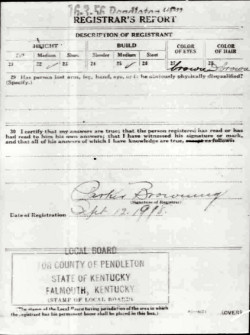 16-3-56 Pendleton
REGISTRAR'S REPORT
DESCRIPTION OF REGISTRANT
HEIGHT BUILD COLOR OF EYES COLOR OF HAIR
Medium Short Slender Medium Stout
21 22 23 24 25 26 27 brown 28 brown
29 Has person lost arm, leg, hand, eye, or is he obviously physically disqualified?
(Specify.)
30 I certify that my answers are true; that the person registered has read or has
had read to him his own answers; that I have witnessed his signature or mark,
and that all of his answers of which I have knowledge are true, except as follows:
Browning
(Signature of Registrar)
Date of Registration Sept. 12, 1918
LOCAL BOARD
FOR COUNTY OF PENDLETON
STATE OF KENTUCKY
FALMOUTH, KENTUCKY.
(STAMP OF LOCAL BOARD)
(The stamp of the Local Board having jurisdiction of the area in which
the registrant has his permanent home shall be placed in this box.)
(OVER)